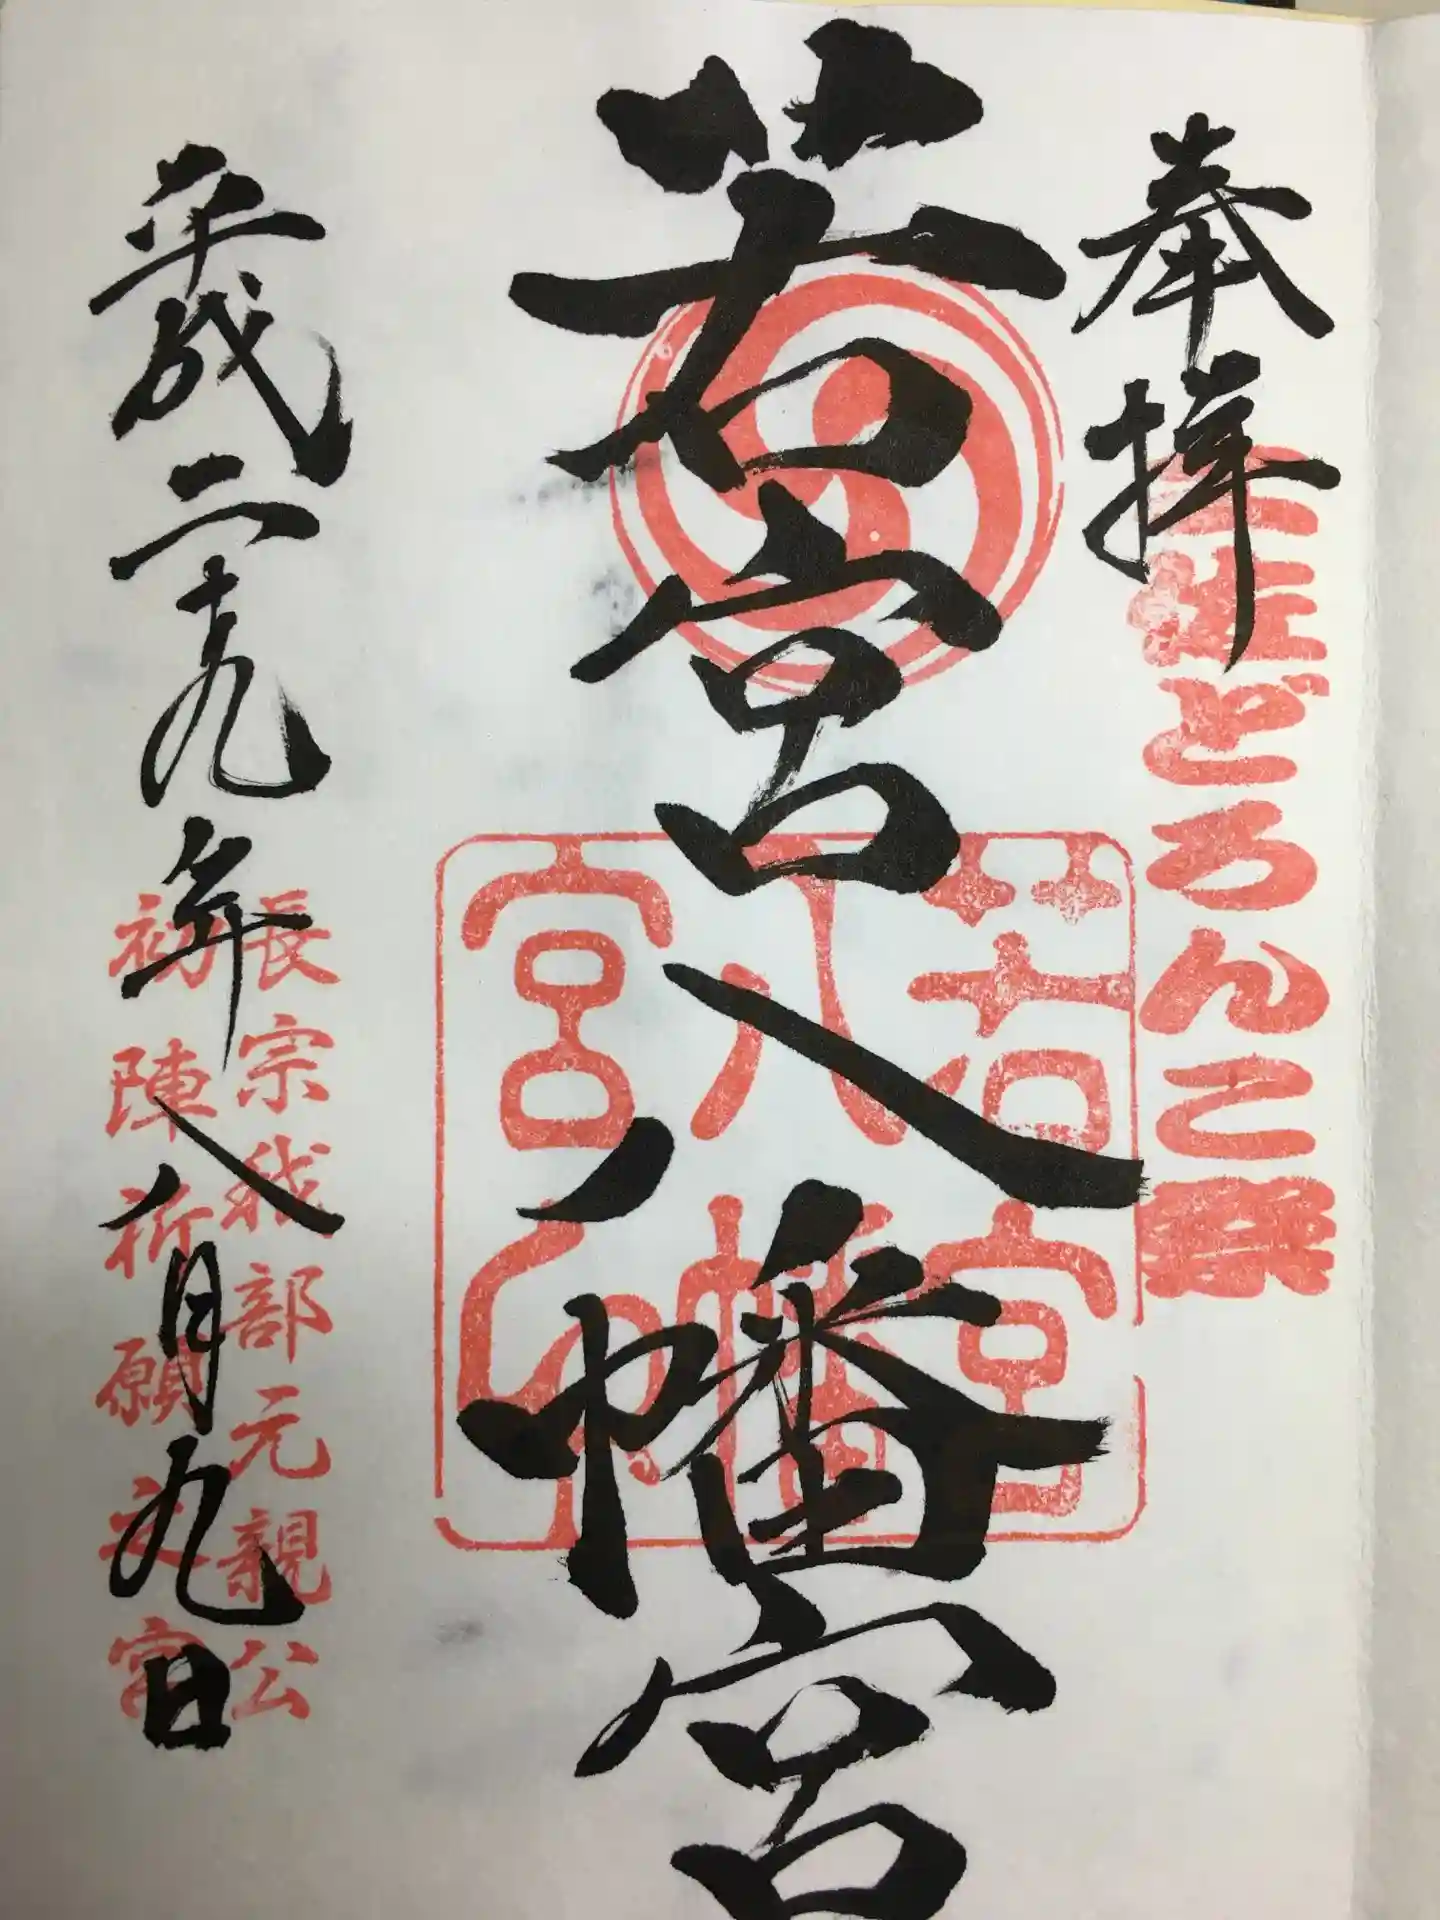 奉拝
土佐どろんこ祭
若宮八幡宮
若宮
八幡
宮印
長宗我部元親公
初陣祈願之宮
平成二十九年八月九日